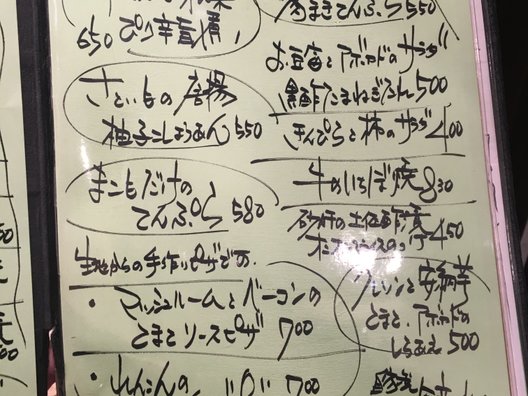 650 ピリ辛醤漬
さといもの唐揚
柚子こしょうあん 550
まこもだけの
てんぷら 580
生地からの手作りピザです。
・マッシュルームとベーコンの
とまとソースピザ 700
・れんこんの 700
肉まきてんぷら 550
お豆富とアボカドのサラダ
黒酢たまねぎドレ 500
きんぴらと柿のサラダ 400
牛のいちぼ焼 830
砂肝の土佐酢漬
450
クレソンと安納芋
とまと、アボカドの
しらあえ 500